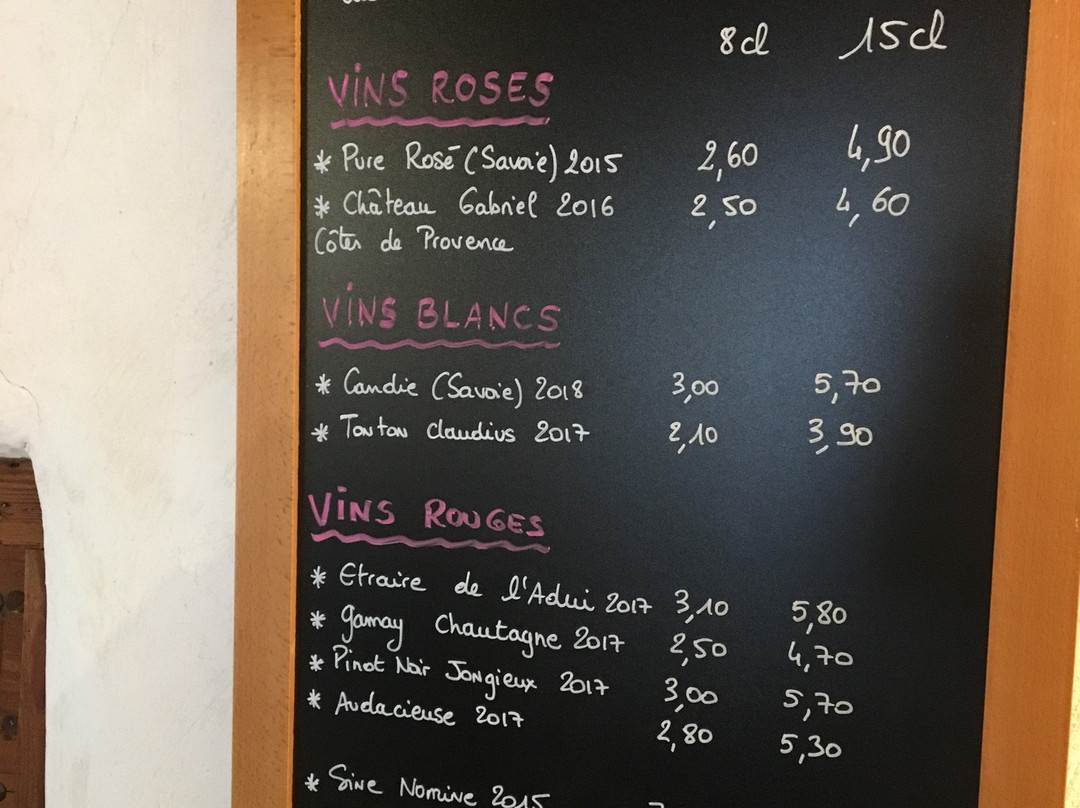 8cl 15cl
VINS ROSES
* Pure Rosé (Savoie) 2015 2,60 4,90
* Château Gabriel 2016 2,50 4,60
Côtes de Provence
VINS BLANCS
* Candie (Savoie) 2018 3,00 5,70
* Tonton Claudius 2017 2,10 3,90
VINS ROUGES
* Etraire de l'Adui 2017 3,10 5,80
* Gamay Chautagne 2017 2,50 4,70
* Pinot Noir Jongieux 2017 3,00 5,70
* Audacieuse 2017 2,80 5,30
* Sine Nomine 2015